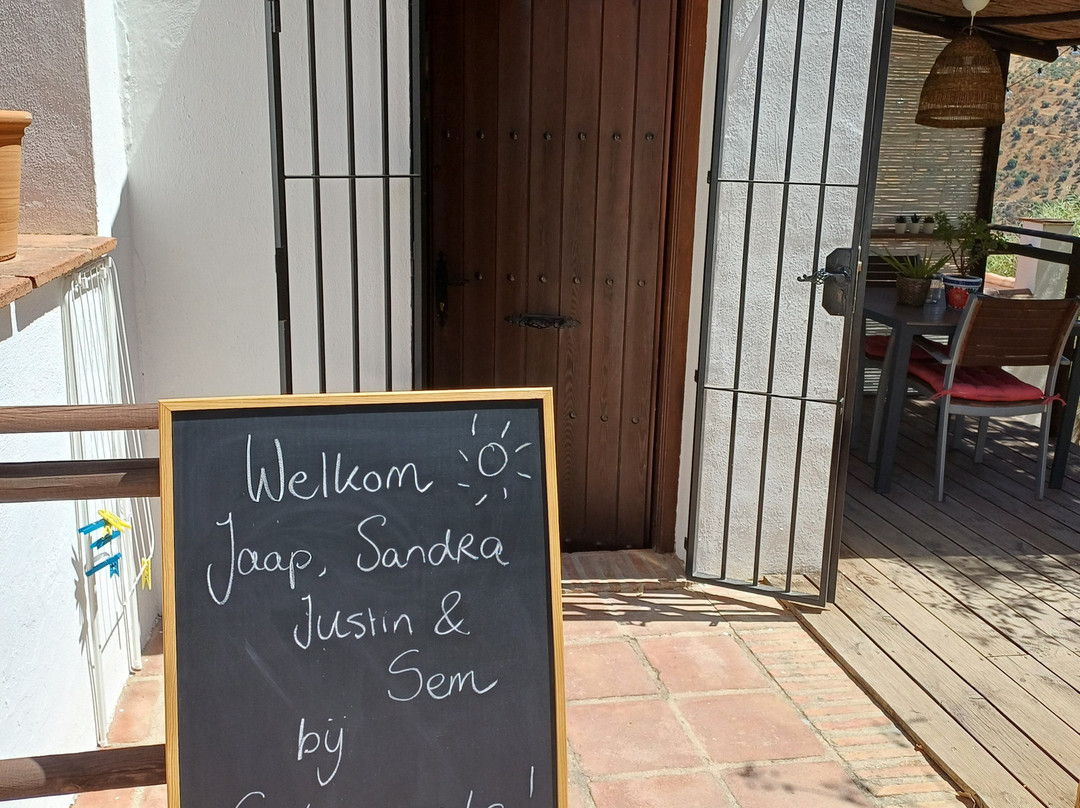 Welkom
Jaap, Sandra
Justin &
Sem
bij